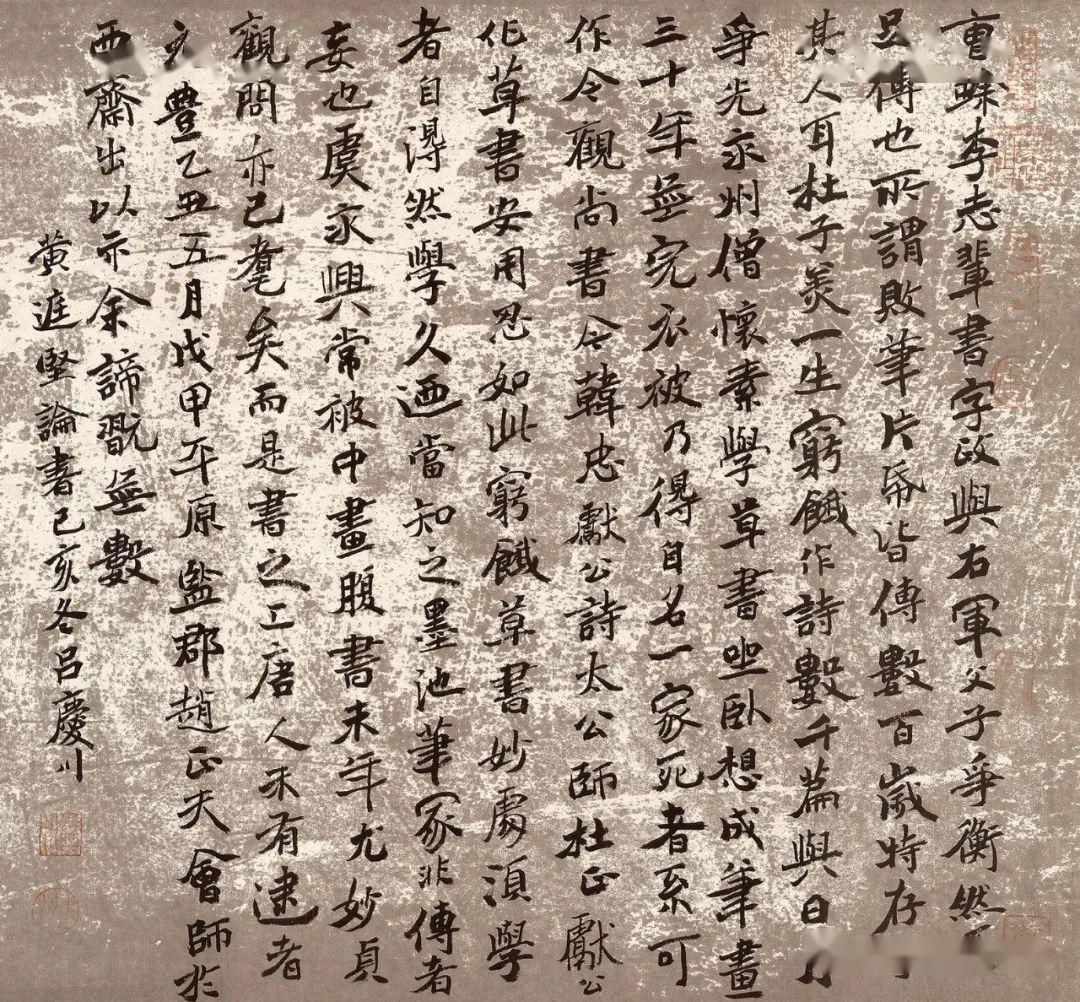 曹蜍李志輩書字政與右軍父子爭衡然不
足傳也所謂敗筆片紙皆傳數百歲特存乎
其人耳杜子美一生窮餓作詩數千篇與日月
爭光永州僧懷素學草書坐臥想成筆畫
三十年無完衣被乃得自名一家死者系可
作令觀尚書令韓忠獻公詩太公師杜正獻公
作草書安用忍如此窮餓草書妙處須學
者自得然學久迺當知之墨池筆冢非傳者
妄也虞永興常被中畫腹書末年尤妙貞
觀間亦已耄矣而是書之工唐人未有逮者
元豐乙丑五月戊申平原監郡趙正夫會師於
西齋出以示余諦翫無數
黃庭堅論書己亥冬呂慶川